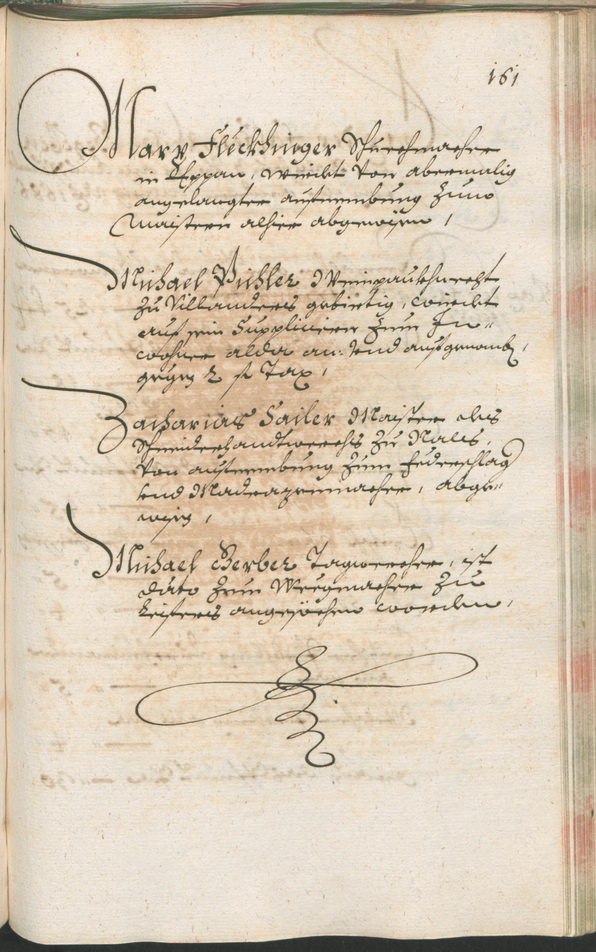 161
Marx Fleckhinger Schuechmacher
in Eppan, wierdt von abermalig
angelangter aufnembung zum
Maistern alhier abgewisen,
Michael Pichler Weinpaukhnecht
zu Villanders gebirtig, wierdt
auf sein Suppliciern zum In¬
wohner alda an: vnd aufgenomben,
gegen 2 fl Tax,
Zacharias Sailer Maister des
Schneiderhandtwerchs zu Nals,
von aufnembung zum
vnd Madrazenmacher, abge¬
wisen,
Michael Gerber Tagwercher, ist
dato zum Weegmacher zu
angenomen worden,